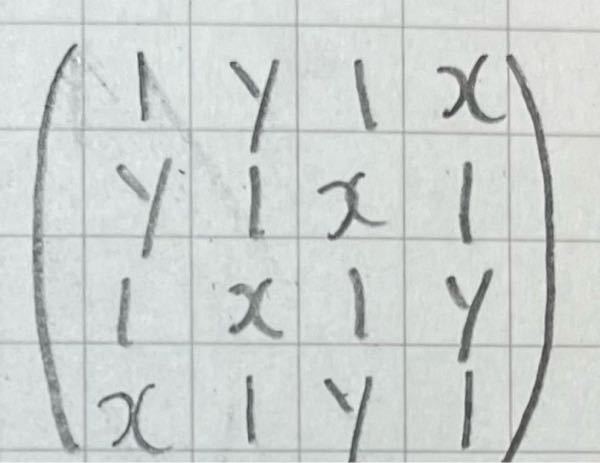 1 y 1 x
y 1 x 1
1 x 1 y
x 1 y 1